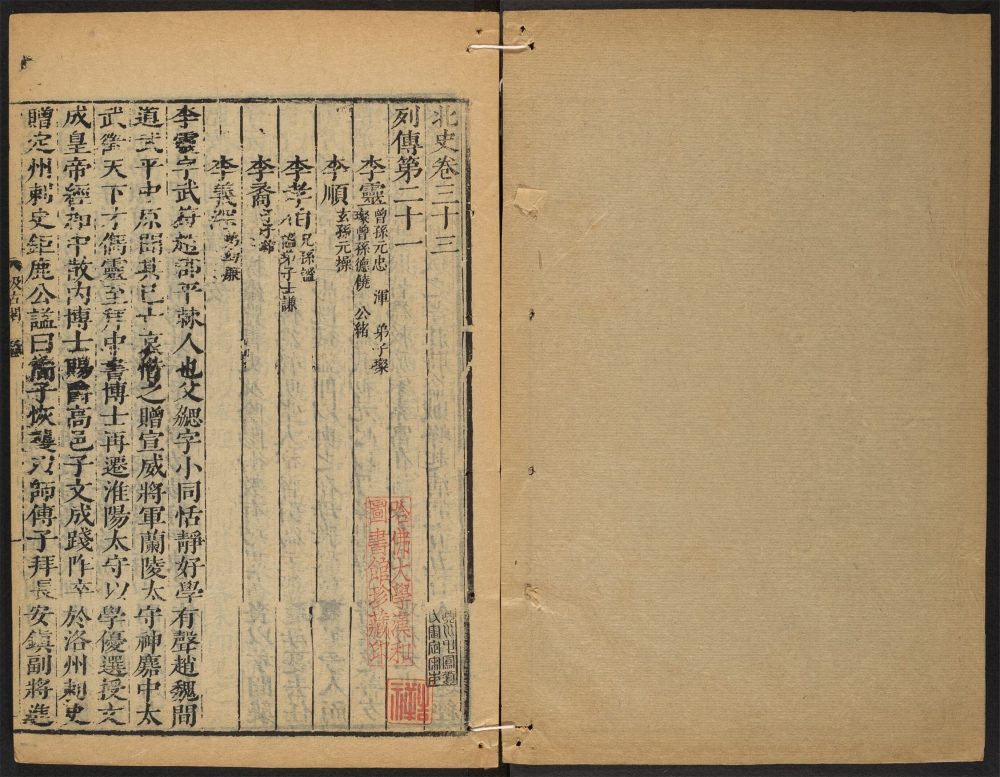 北史卷三十三
列傳第二十一
李靈 曾孫元忠 渾 弟子璨
璨曾孫德饒 公緒
李順 玄孫元操
李孝伯 兄孫謐
謐弟子士謙
李裔 子子雄
李義深 弟幼廉
李靈字武符趙郡平棘人也父勰字小同恬靜好學有聲趙魏間
道武平中原聞其已亡哀惜之贈宣威將軍蘭陵太守神䴥中太
武徵天下才儁靈至拜中書博士再遷淮陽太守以學優選授文
成皇帝經加中散內博士賜爵高邑子文成踐阼卒於洛州刺史
贈定州刺史鉅鹿公謚曰簡子恢襲以師傅子拜長安鎮副將進
汲古閣
哈佛大學漢和
圖書館珍藏印